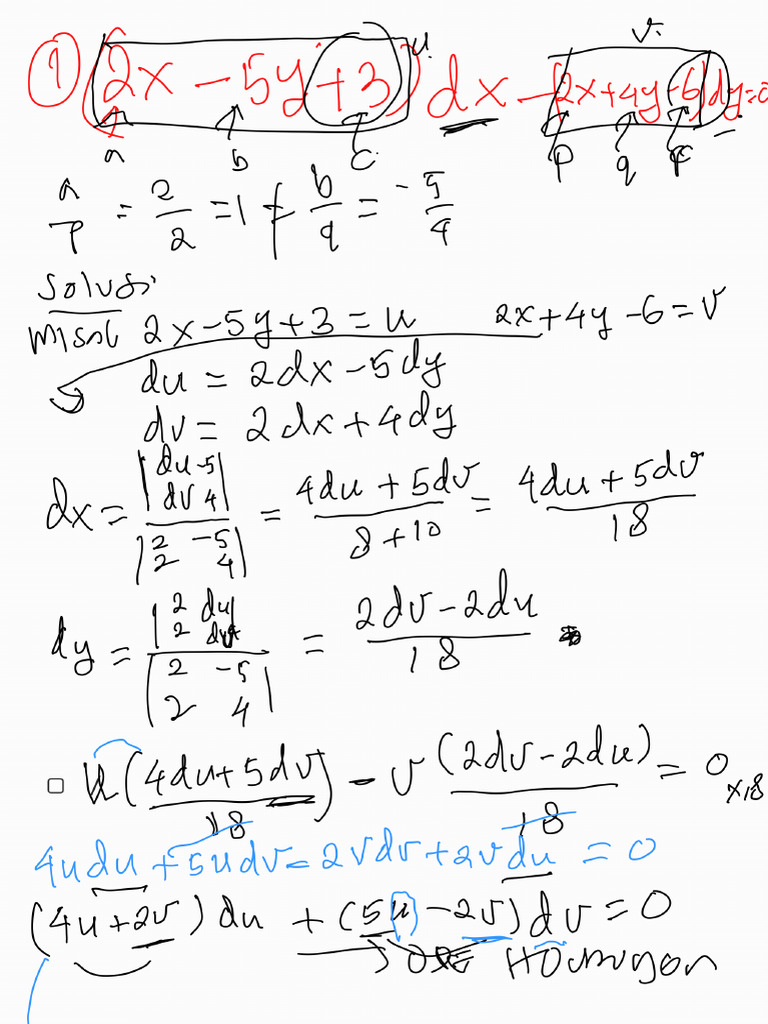 ① (2x - 5y + 3) dx - (2x + 4y - 6) dy = 0
u v
a b c p q r
a/p = 2/2 = 1 ≠ b/q = -5/4
Solusi
Misal 2x - 5y + 3 = u 2x + 4y - 6 = v
du = 2dx - 5dy
dv = 2dx + 4dy
dx = |du -5; dv 4| / |2 -5; 2 4| = (4du + 5dv)/(8 + 10) = (4du + 5dv)/18
dy = |2 du; 2 dv| / |2 -5; 2 4| = (2dv - 2du)/18
u (4du + 5dv)/18 - v (2dv - 2du)/18 = 0 ×18
4udu + 5udv - 2vdv + 2vdu = 0
(4u + 2v) du + (5u - 2v) dv = 0
Homogen